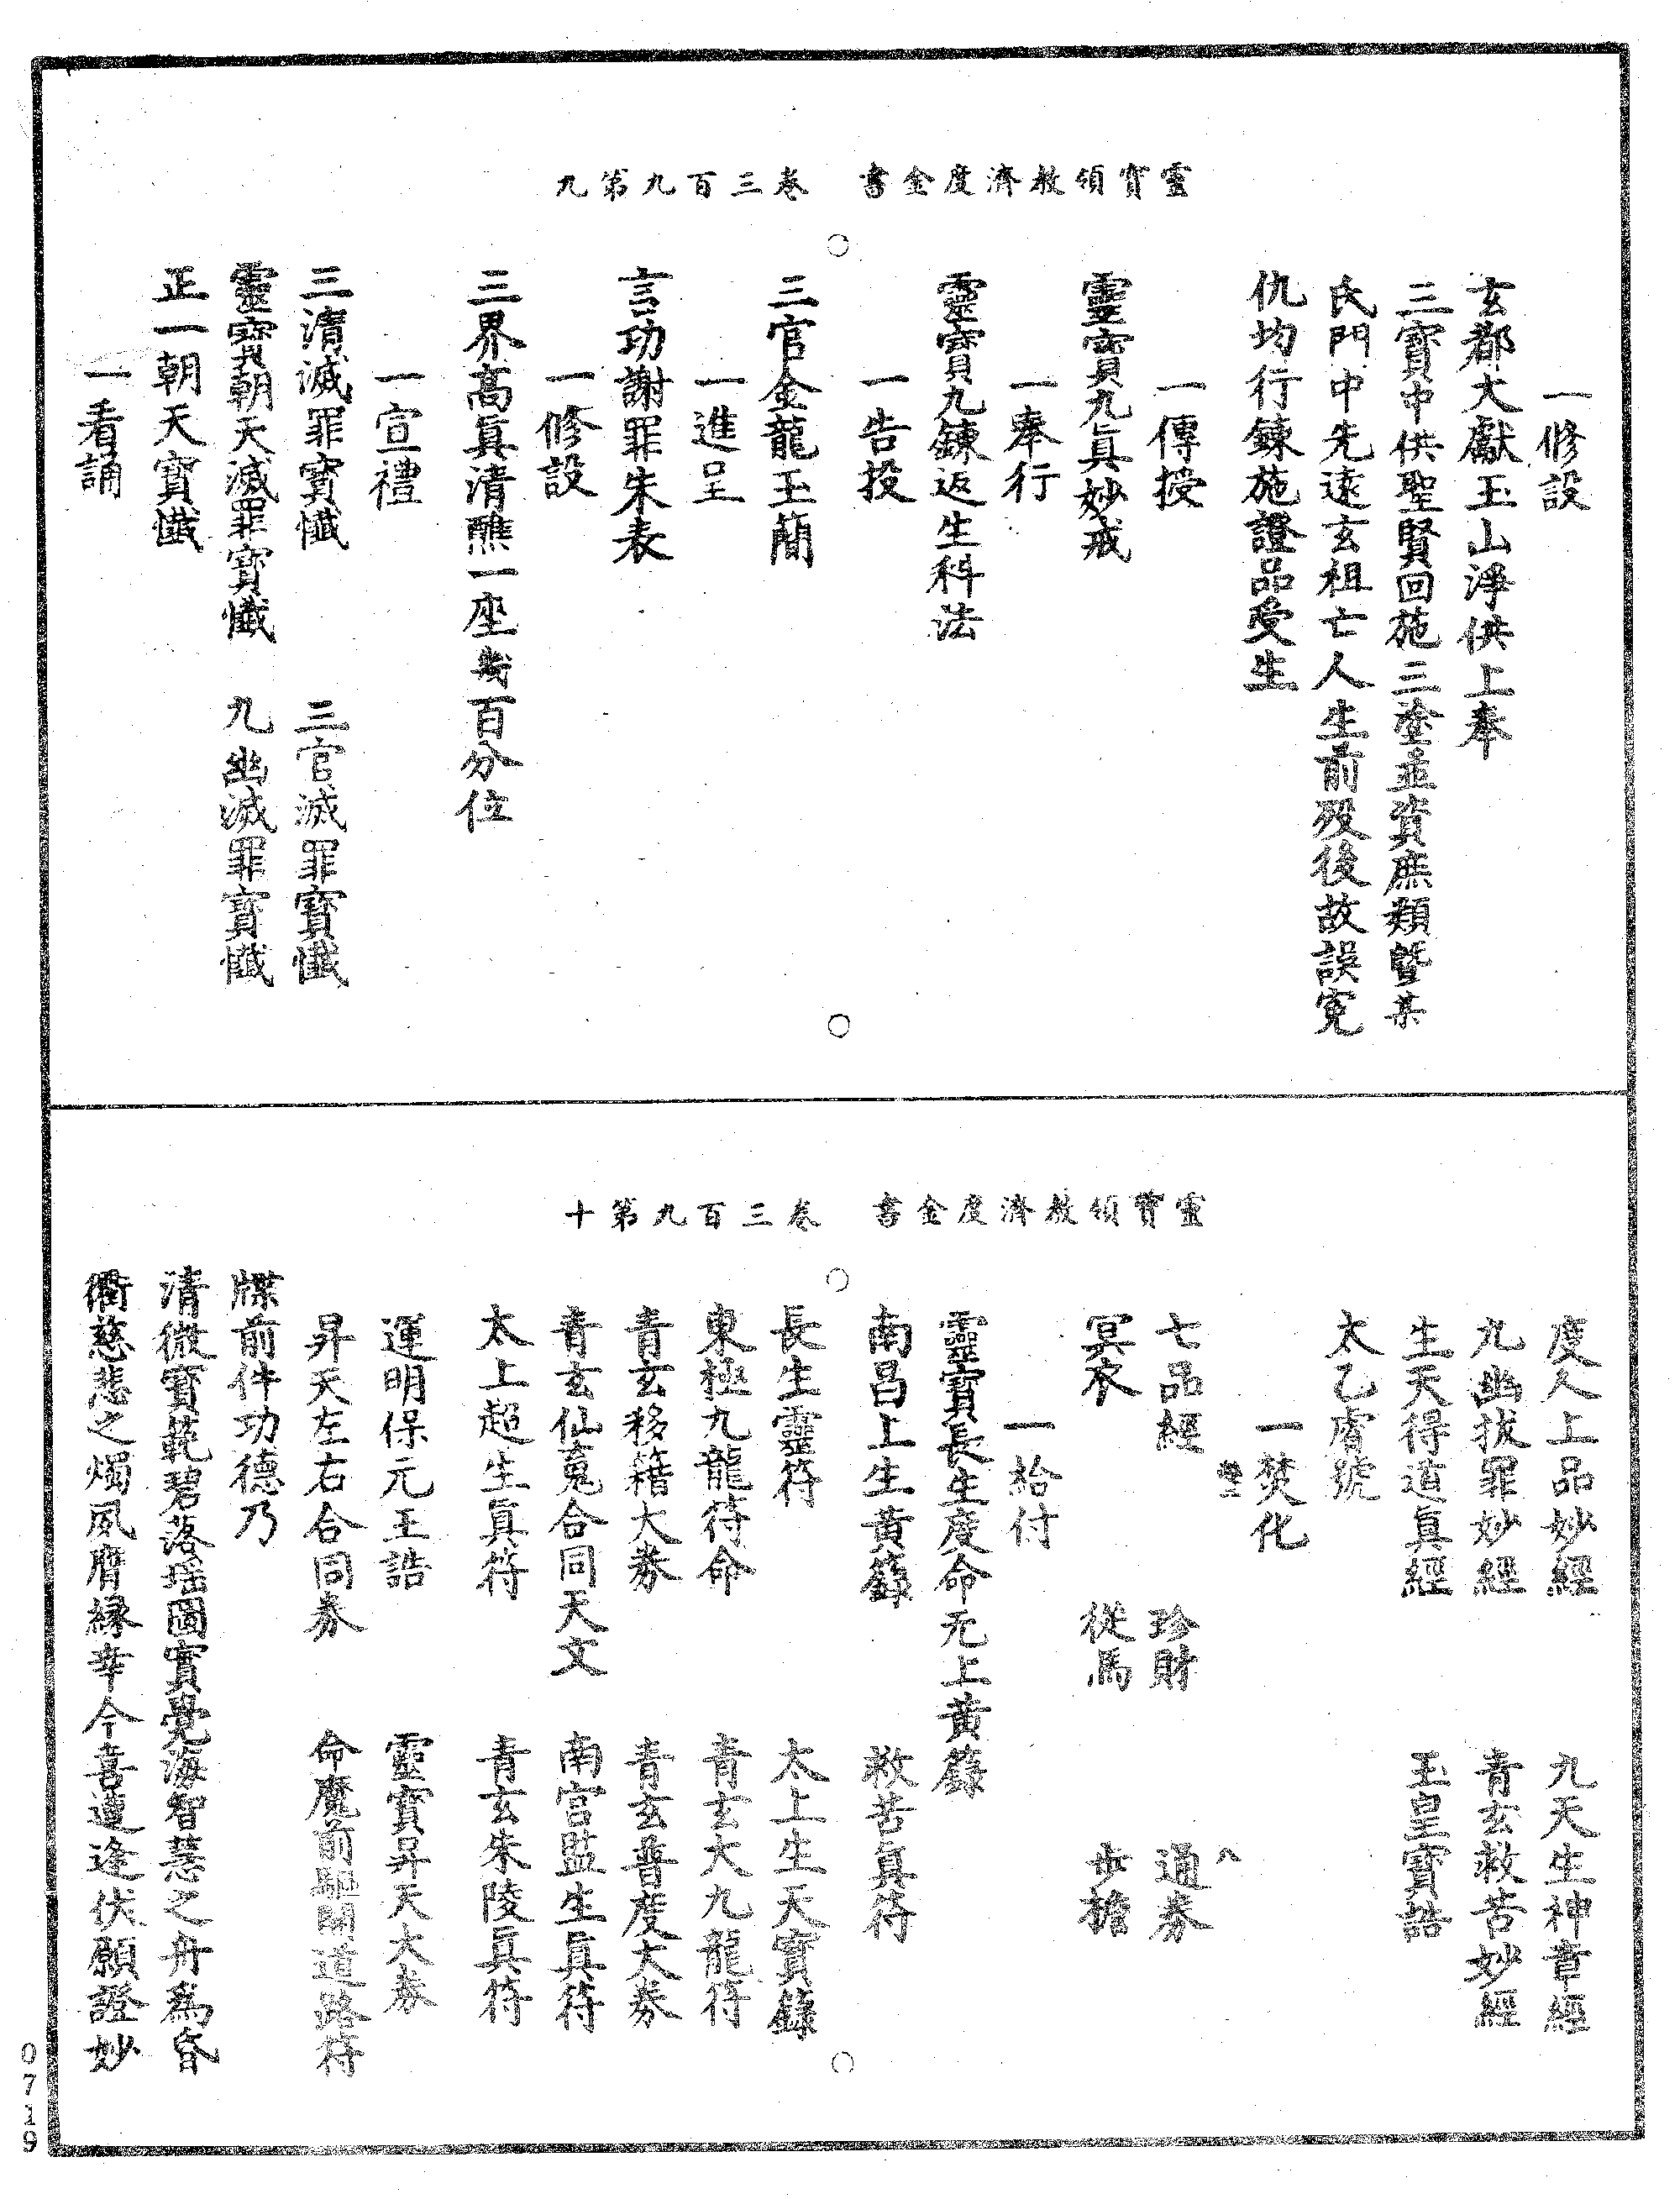 靈寶領教濟度金書　卷三百九第九
一修設
玄都大獻玉山淨供上奉
三寶中供聖賢回施三塗並資庶類曁某
氏門中先遠玄祖亡人生前歿後故誤寃
仇均行鍊施證品受生
一傳授
靈寶九眞妙戒
一奉行
靈寶九鍊返生科法
一告投
三官金龍玉簡
一進呈
言功謝罪朱表
一修設
三界高眞清醮一座幾百分位
一宣禮
三清滅罪寶懺　三官滅罪寶懺
靈寶朝天滅罪寶懺　九幽滅罪寶懺
正一朝天寶懺
一看誦
靈寶領教濟度金書　卷三百九第十
度人上品妙經　九天生神章經
九幽拔罪妙經　青玄救苦妙經
生天得道眞經　玉皇寶誥
太乙膚號
一焚化
八
七品經　珍財　通券
冥衣　從馬　步擔
一給付
靈寶長生度命无上黃籙
南昌上生黃籙　救苦眞符
長生靈符　太上生天寶籙
東極九龍符命　青玄大九龍符
青玄移籍大券　青玄普度大券
青玄仙蒐合同天文　南宫監生眞符
太上超生眞符　青玄朱陵眞符
運明保元王誥　靈寶昇天大券
昇天左右合同券　命魔前驅開道路符
牒前件功德乃
清微寶範碧落瑶圖實覺海智慧之舟爲昏
衢慈悲之燭夙膺縁幸今喜遭逢伏願證妙
0719